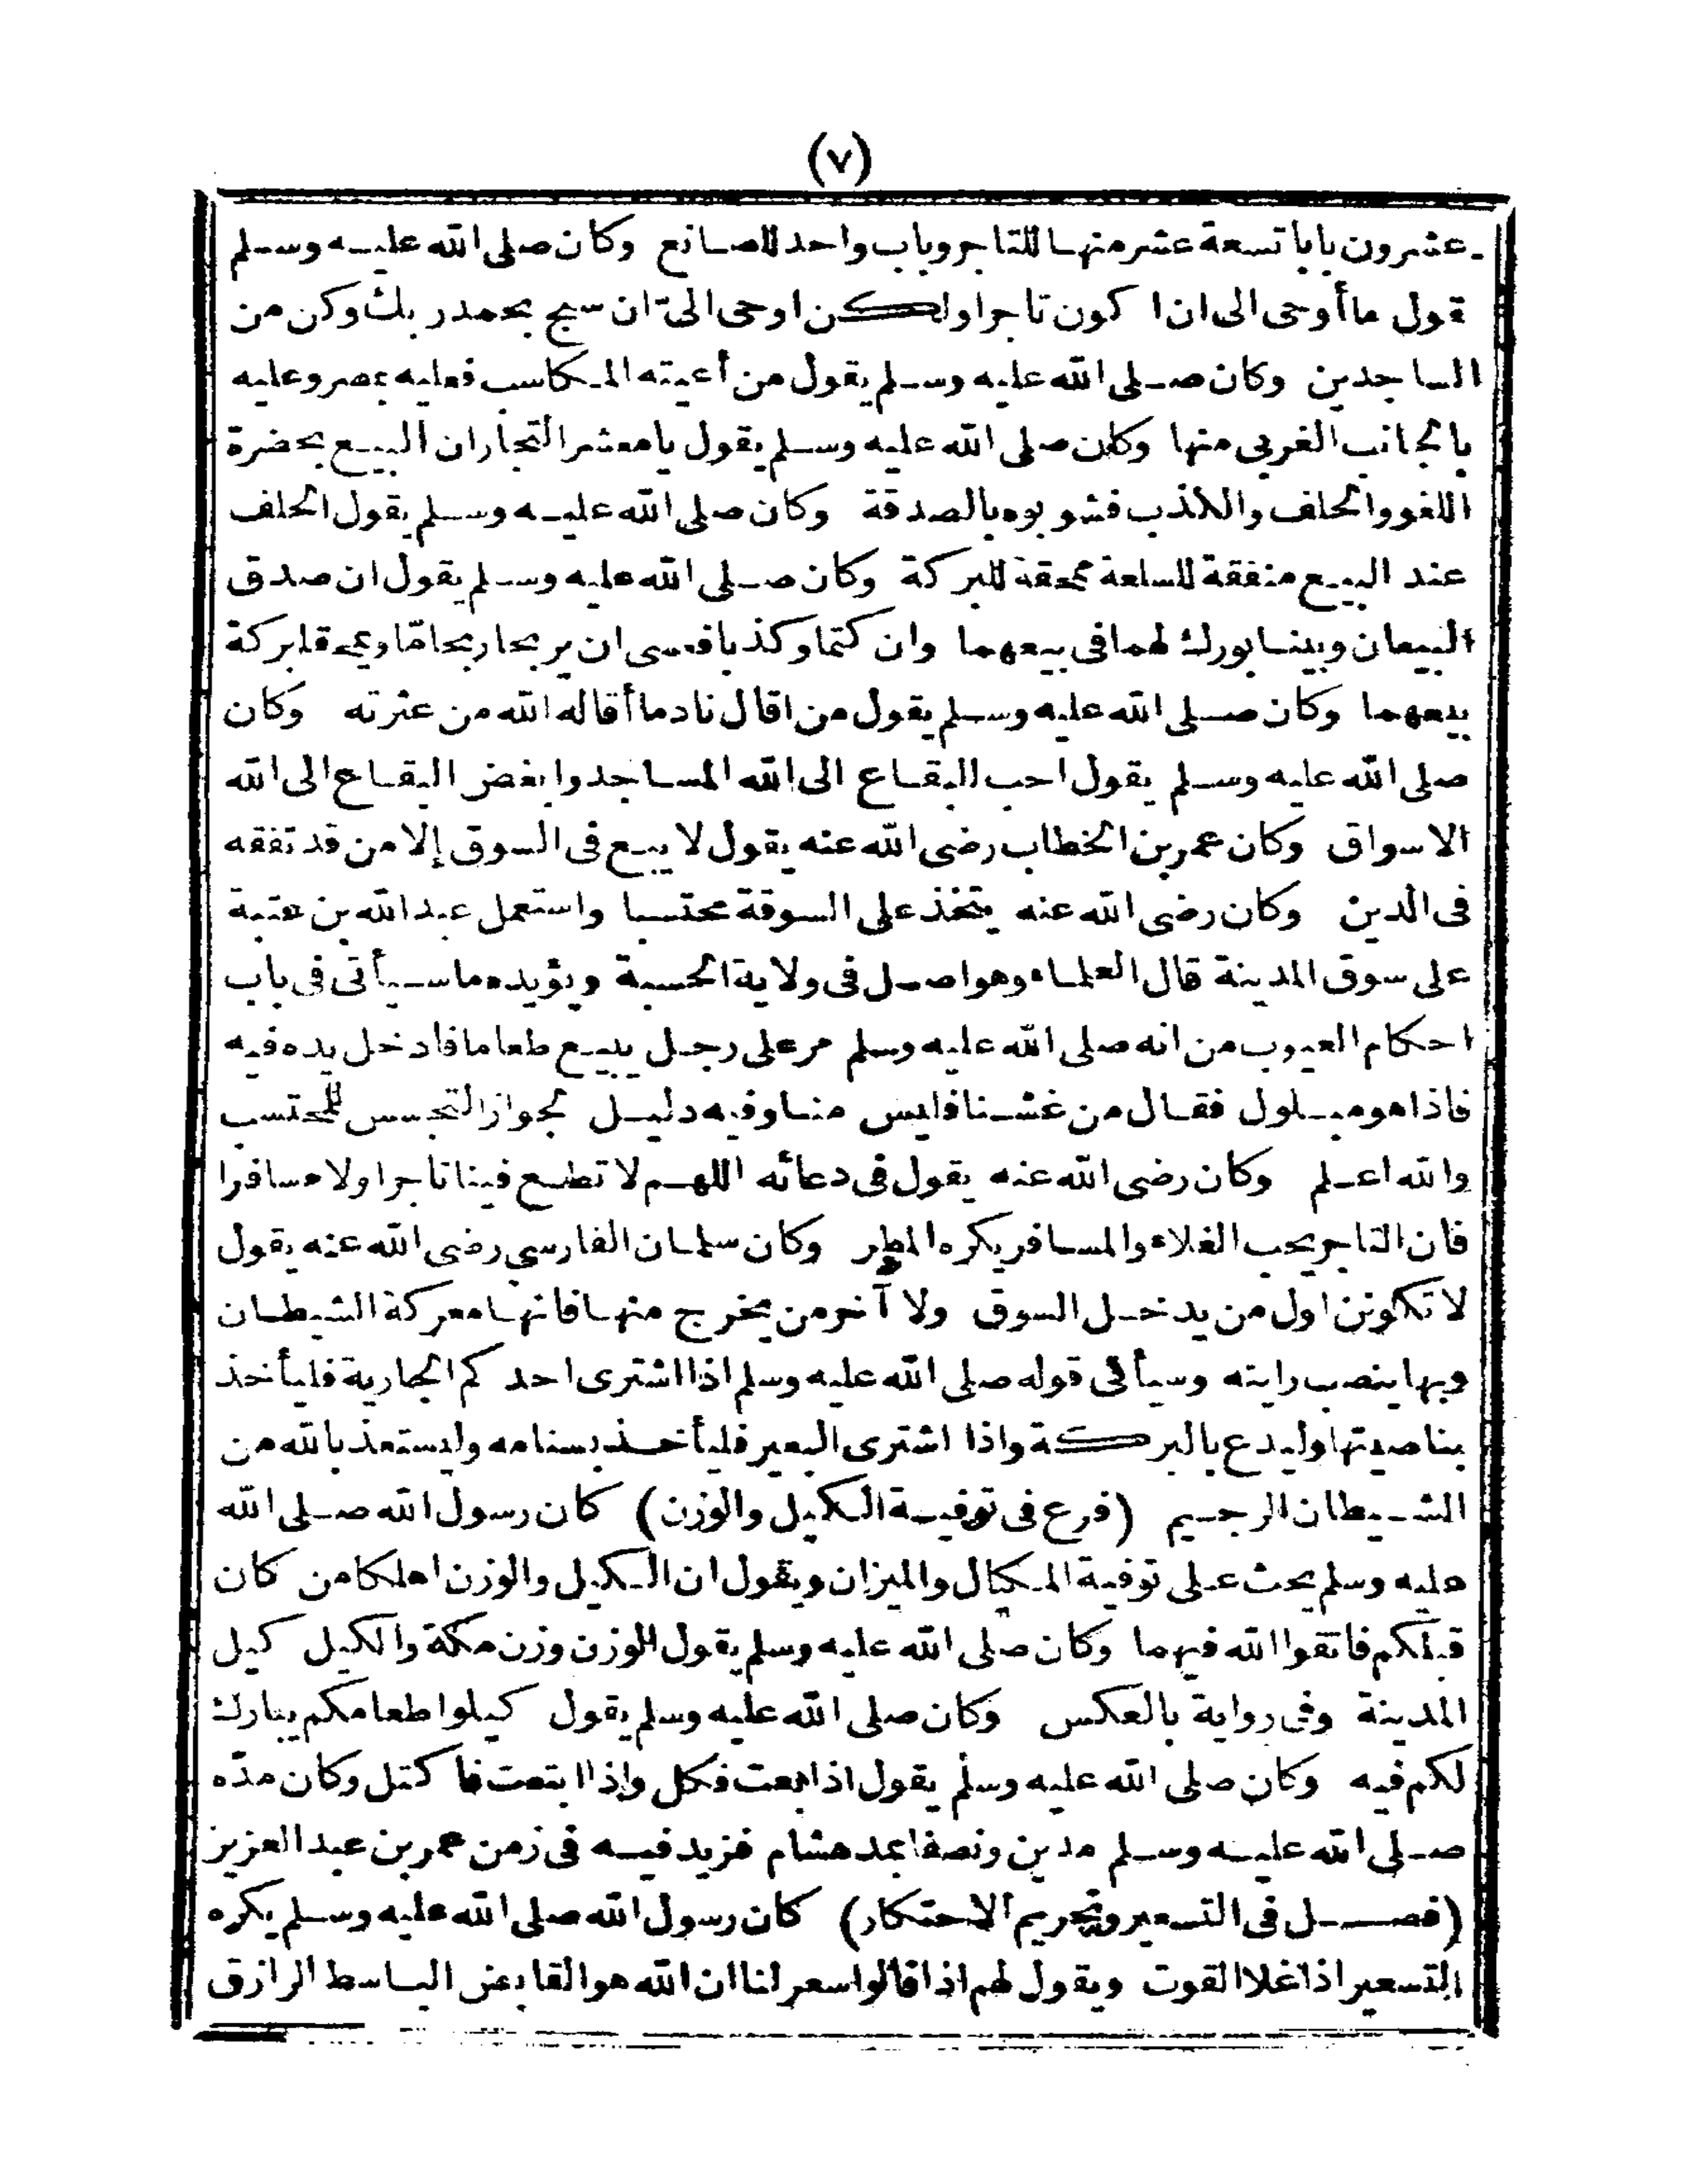 (٧)
عشرون بابا تسعة عشر منها للتاجر وباب واحد للصانع وكان صلى الله عليه وسلم
قول ما أوحى الى ان اكون تاجرا ولكن اوحى الىّ ان سبح بحمد ربك وكن من
الساجدين وكان صلى الله عليه وسلم يقول من أعيته المكاسب فعليه بمصر وعليه
بالجانب الغربى منها وكان صلى الله عليه وسلم يقول يا معشر التجار ان البيع بحضرة
اللغو والحلف والكذب فشوبوه بالصدقة وكان صلى الله عليه وسلم يقول الحلف
عند البيع منفقة للسلعة ممحقة للبركة وكان صلى الله عليه وسلم يقول ان صدق
البيعان وبينا بورك لهما فى بيعهما وان كتما وكذبا فعسى ان يربحا ربحا مّا ويمحقا بركة
بيعهما وكان صلى الله عليه وسلم يقول من اقال نادما أقاله الله من عثرته وكان
صلى الله عليه وسلم يقول احب البقاع الى الله المساجد وابغض البقاع الى الله
الاسواق وكان عمر بن الخطاب رضى الله عنه يقول لا يبع فى السوق إلا من قد تفقه
فى الدين وكان رضى الله عنه يتخذ على السوقة محتسبا واستعمل عبد الله بن عتبة
على سوق المدينة قال العلماء وهو اصل فى ولاية الحسبة ويؤيده ما سيأتى فى باب
احكام العيوب من انه صلى الله عليه وسلم مر على رجل يبيع طعاما فادخل يده فيه
فاذا هو مبلول فقال من غشنا فليس منا وفيه دليل لجواز التجسس للمحتسب
والله اعلم وكان رضى الله عنه يقول فى دعائه اللهم لا تطع فينا تاجرا ولا مسافرا
فان التاجر يحب الغلاء والمسافر يكره المطر وكان سلمان الفارسى رضى الله عنه يقول
لا تكونن اول من يدخل السوق ولا آخر من يخرج منها فانها معركة الشيطان
وبها ينصب رايته وسيأتى قوله صلى الله عليه وسلم اذا اشترى احدكم الجارية فليأخذ
بناصيتها وليدع بالبركة واذا اشترى البعير فليأخذ بسنامه وليستعذ بالله من
الشيطان الرجيم (فرع فى توفية الكيل والوزن) كان رسول الله صلى الله
عليه وسلم يحث على توفية المكيال والميزان ويقول ان الكيل والوزن اهلكا من كان
قبلكم فاتقوا الله فيهما وكان صلى الله عليه وسلم يقول الوزن وزن مكة والكيل كيل
المدينة وفى رواية بالعكس وكان صلى الله عليه وسلم يقول كيلوا طعامكم يبارك
لكم فيه وكان صلى الله عليه وسلم يقول اذا بعت فكل واذا ابتعت فاكتل وكان مدّه
صلى الله عليه وسلم مدين ونصفا بمد هشام فزيد فيه فى زمن عمر بن عبد العزيز
(فصل فى التسعير وتحريم الاحتكار) كان رسول الله صلى الله عليه وسلم يكره
التسعير اذا غلا القوت ويقول لهم اذا قالوا سعر لنا ان الله هو القابض الباسط الرازق